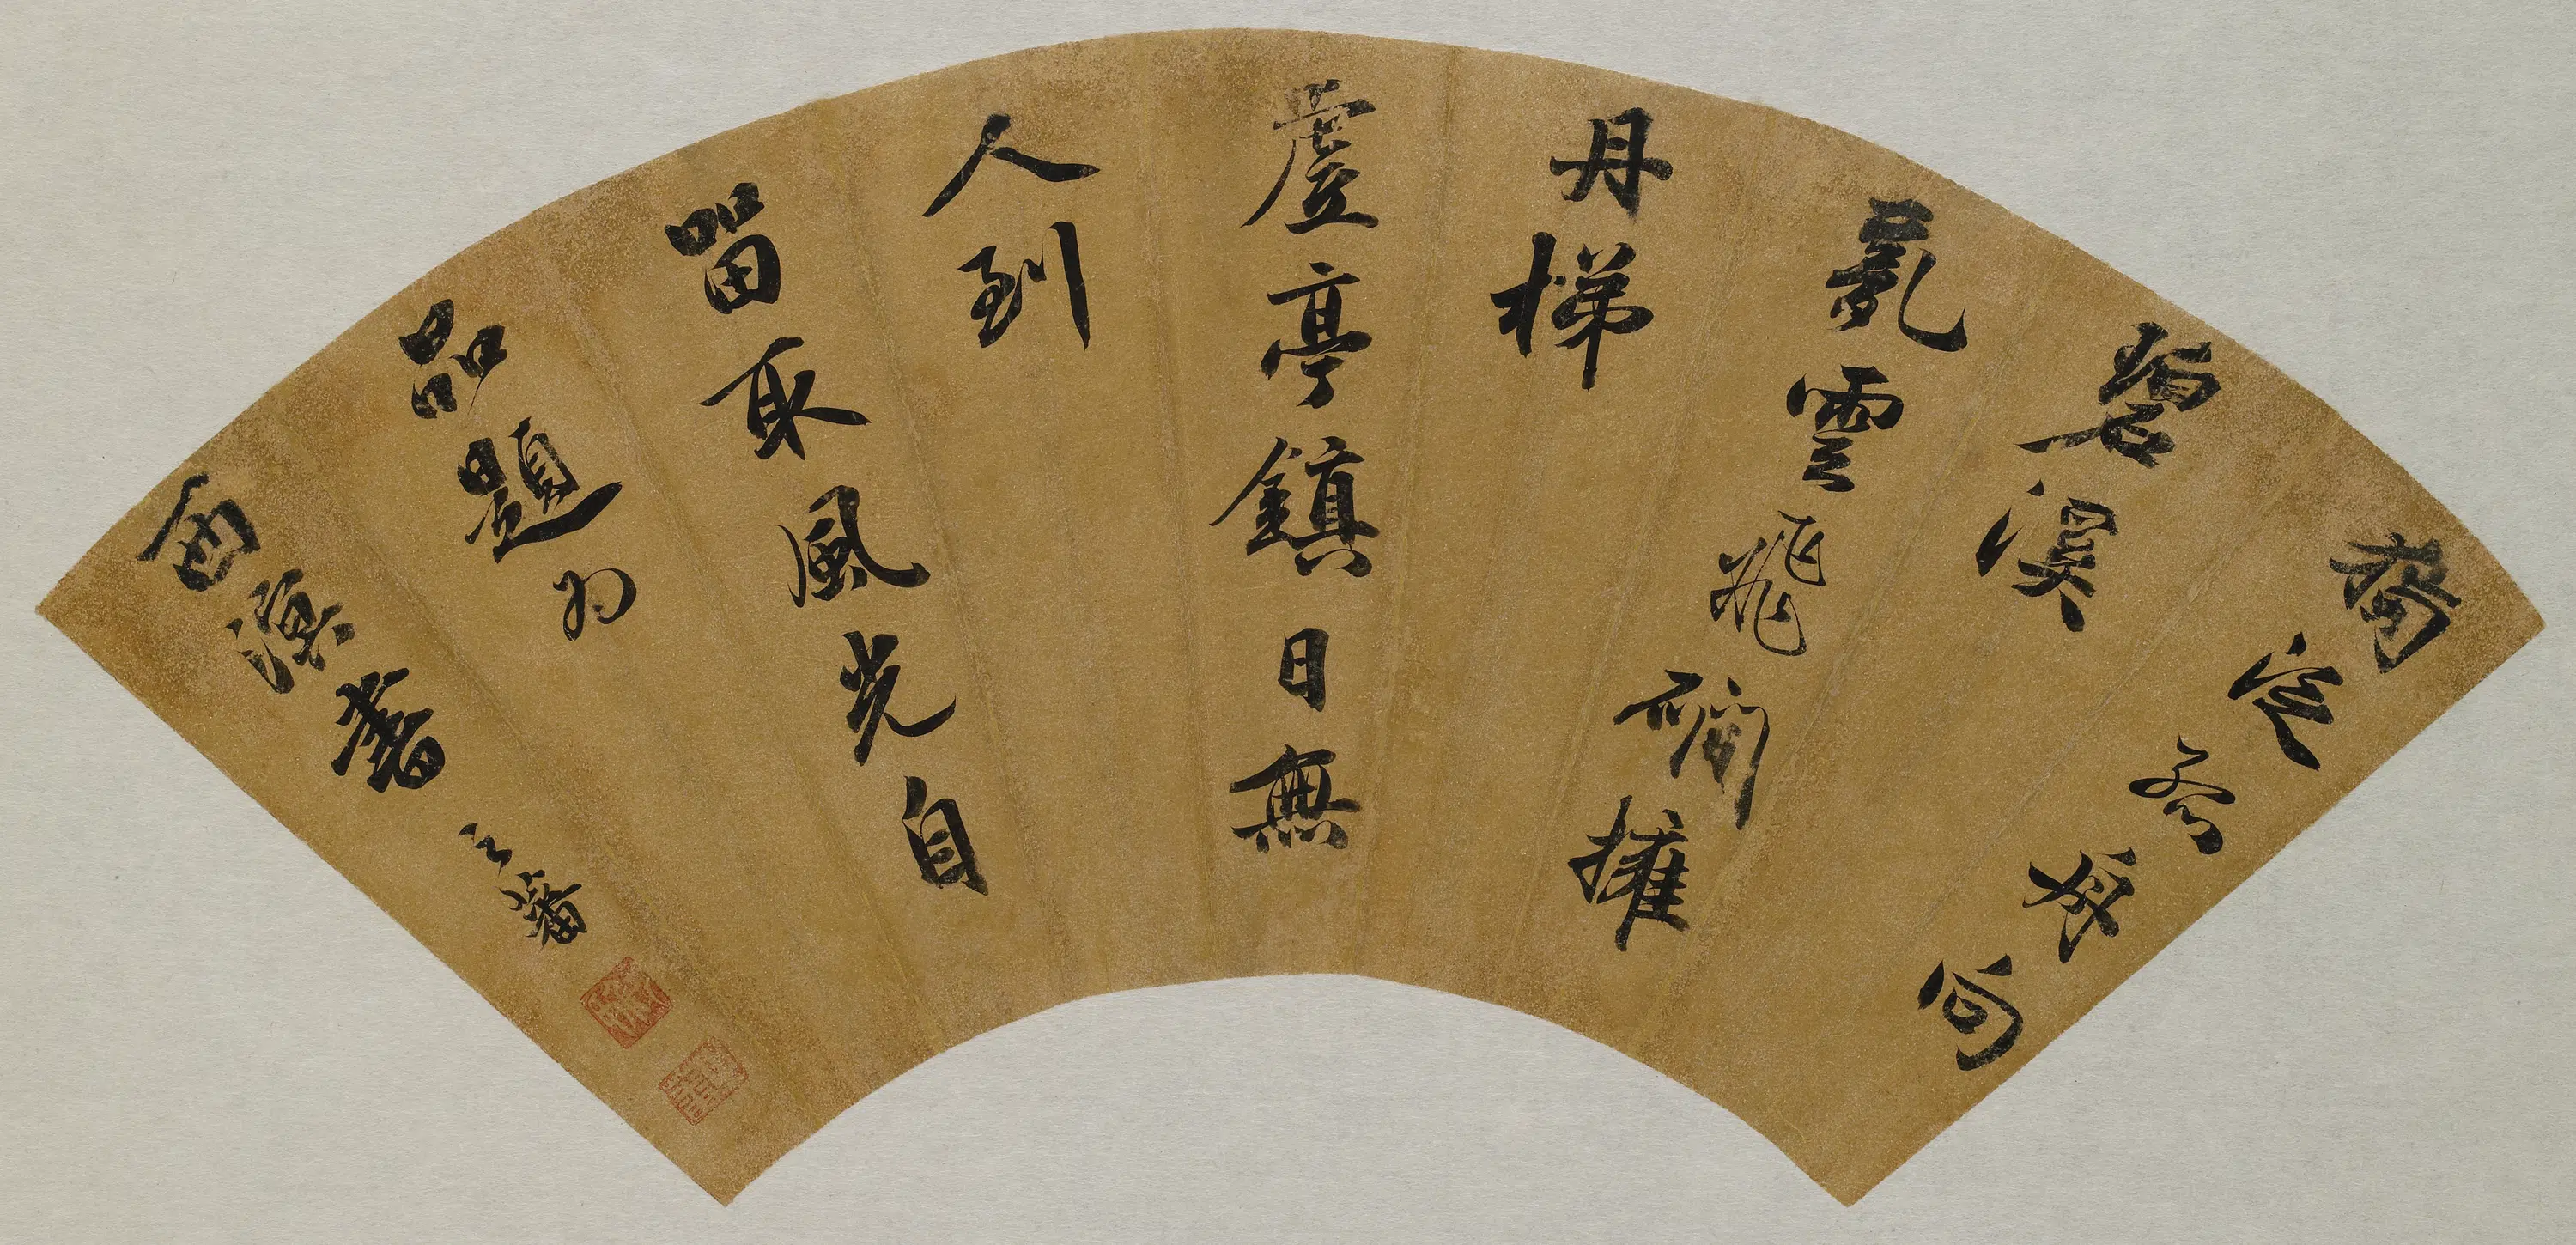 長句
碧溪
亂雲飛磵擁
丹梯
虛亭鎮日無
人到
留取風光自
品題為
西溟書 之